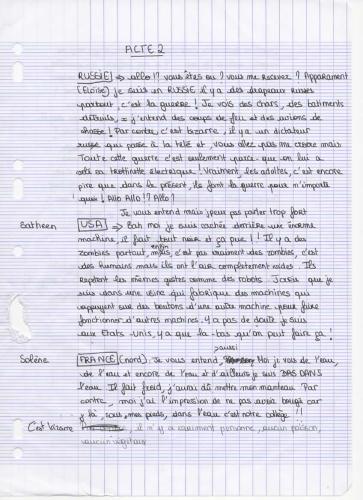 ACTE 2
RUSSIE => allo!? vous êtes où ? vous me recevez ? Apparament
(Eloïse) je suis en RUSSIE il y a des drapeaux russes
partout, c'est la guerre ! Je vois des chars, des batiments
détruits, j'entend des coups de feu et des avions de
chasse ! Par contre, c'est bizarre, il y a un dictateur
russe qui passe à la télé et vous allez pas me croire mais
Toute cette guerre c'est seulement parce que on lui a
volé sa trottinette électrique ! Vraiment les adultes, c'est encore
pire que dans le présent, ils font la guerre pour n'importe
quoi ! Allo Allo !? Allo ?
Je vous entend mais j'peux pas parler trop fort
USA => Bah moi je suis cachée derrière une énorme
machine, il fait tout noir et ça pue ! ! Il y a des
zombies partout, enfin c'est pas vraiment des zombies, c'est
des humains mais ils ont l'air complètement vides. Ils
repètent les mêmes gestes comme des robots. J'crois que je
suis dans une usine qui fabrique des machines qui
appuient sur des boutons d'une autre machine pour faire
fonctionner d'autres machines. Y a pas de doute je suis
aux Etats-Unis, y a que là-bas qu'on peut faire ça !
aussi
Solène FRANCE (Nord). Je vous entend, Moi je vois de l'eau,
de l'eau et encore de l'eau et d'ailleurs je suis DANS
l'eau. Il fait froid, j'aurai dû mettre mon manteau. Par
contre, moi j'ai l'impression de ne pas avoir bougé car
là, sous mes pieds, dans l'eau c'est notre collège !!
C'est bizarre, il n'y a vraiment personne, aucun poisson,
aucun végétaux